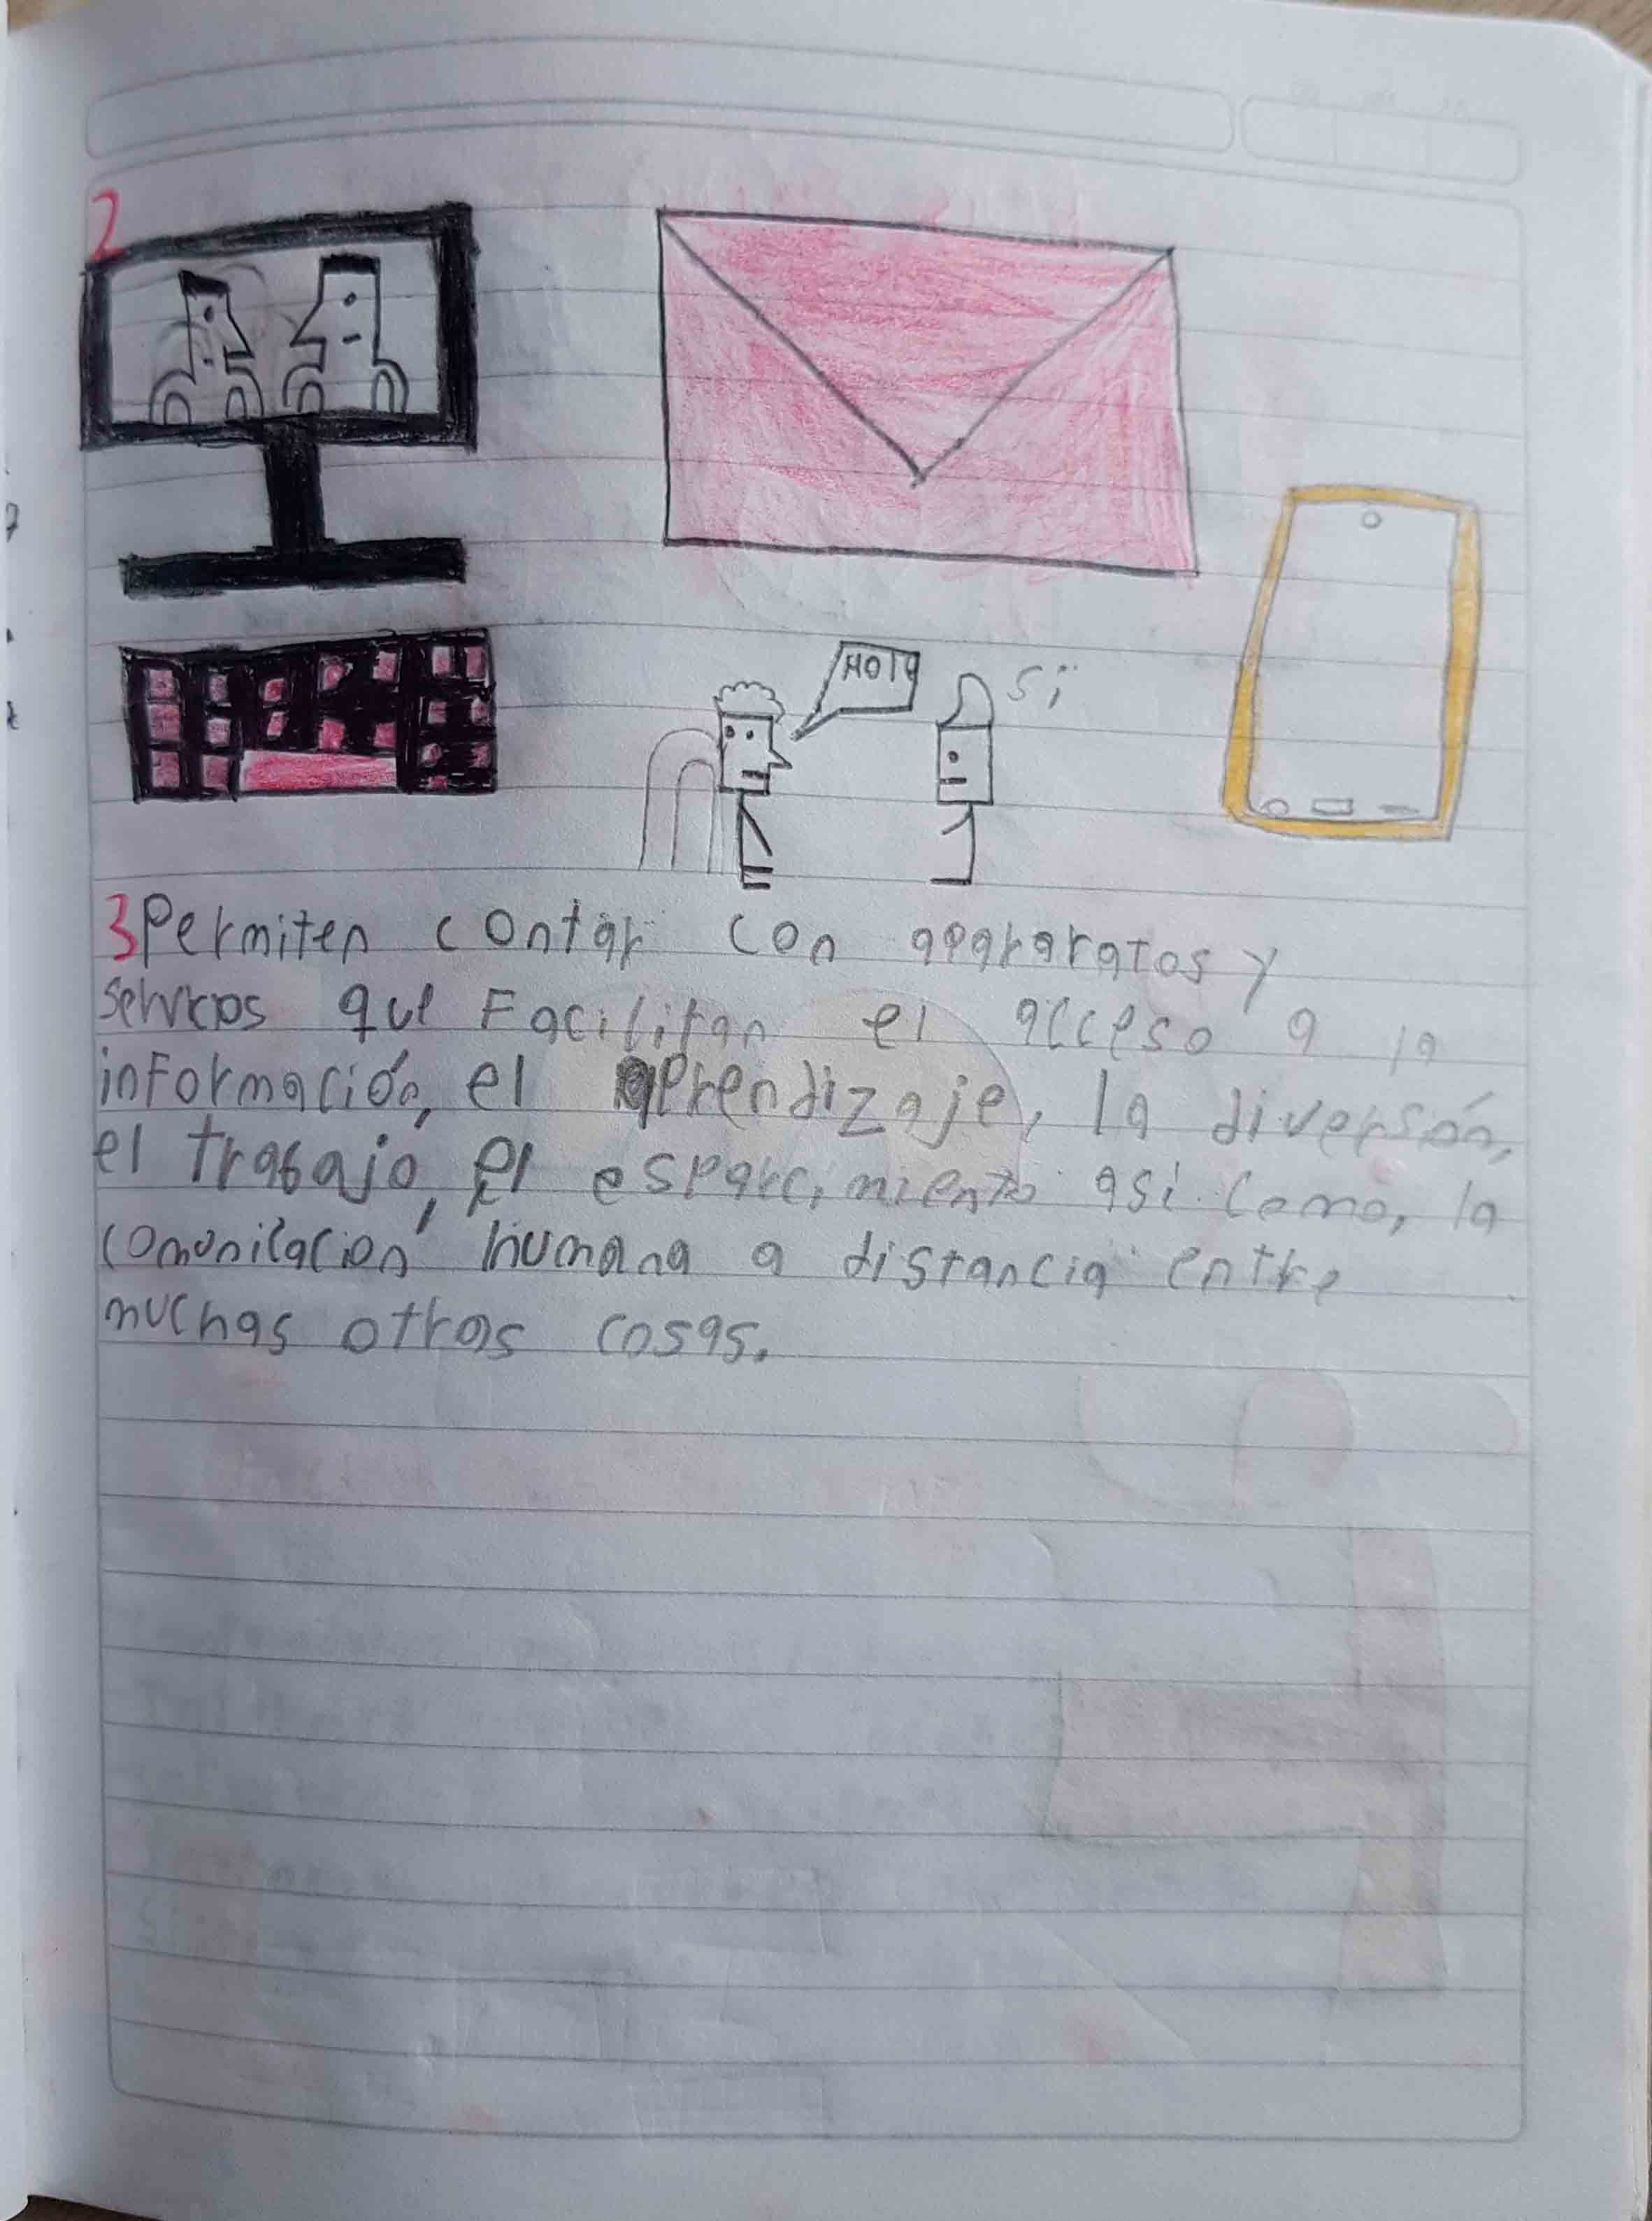 2
Si
3 Permiten contar con apararatos y
servicios que Facilitan el acceso a la
información, el aprendizaje, la diversión,
el trabajo, el esparcimiento asi como, la
comunicación humana a distancia entre
muchas otras cosas.